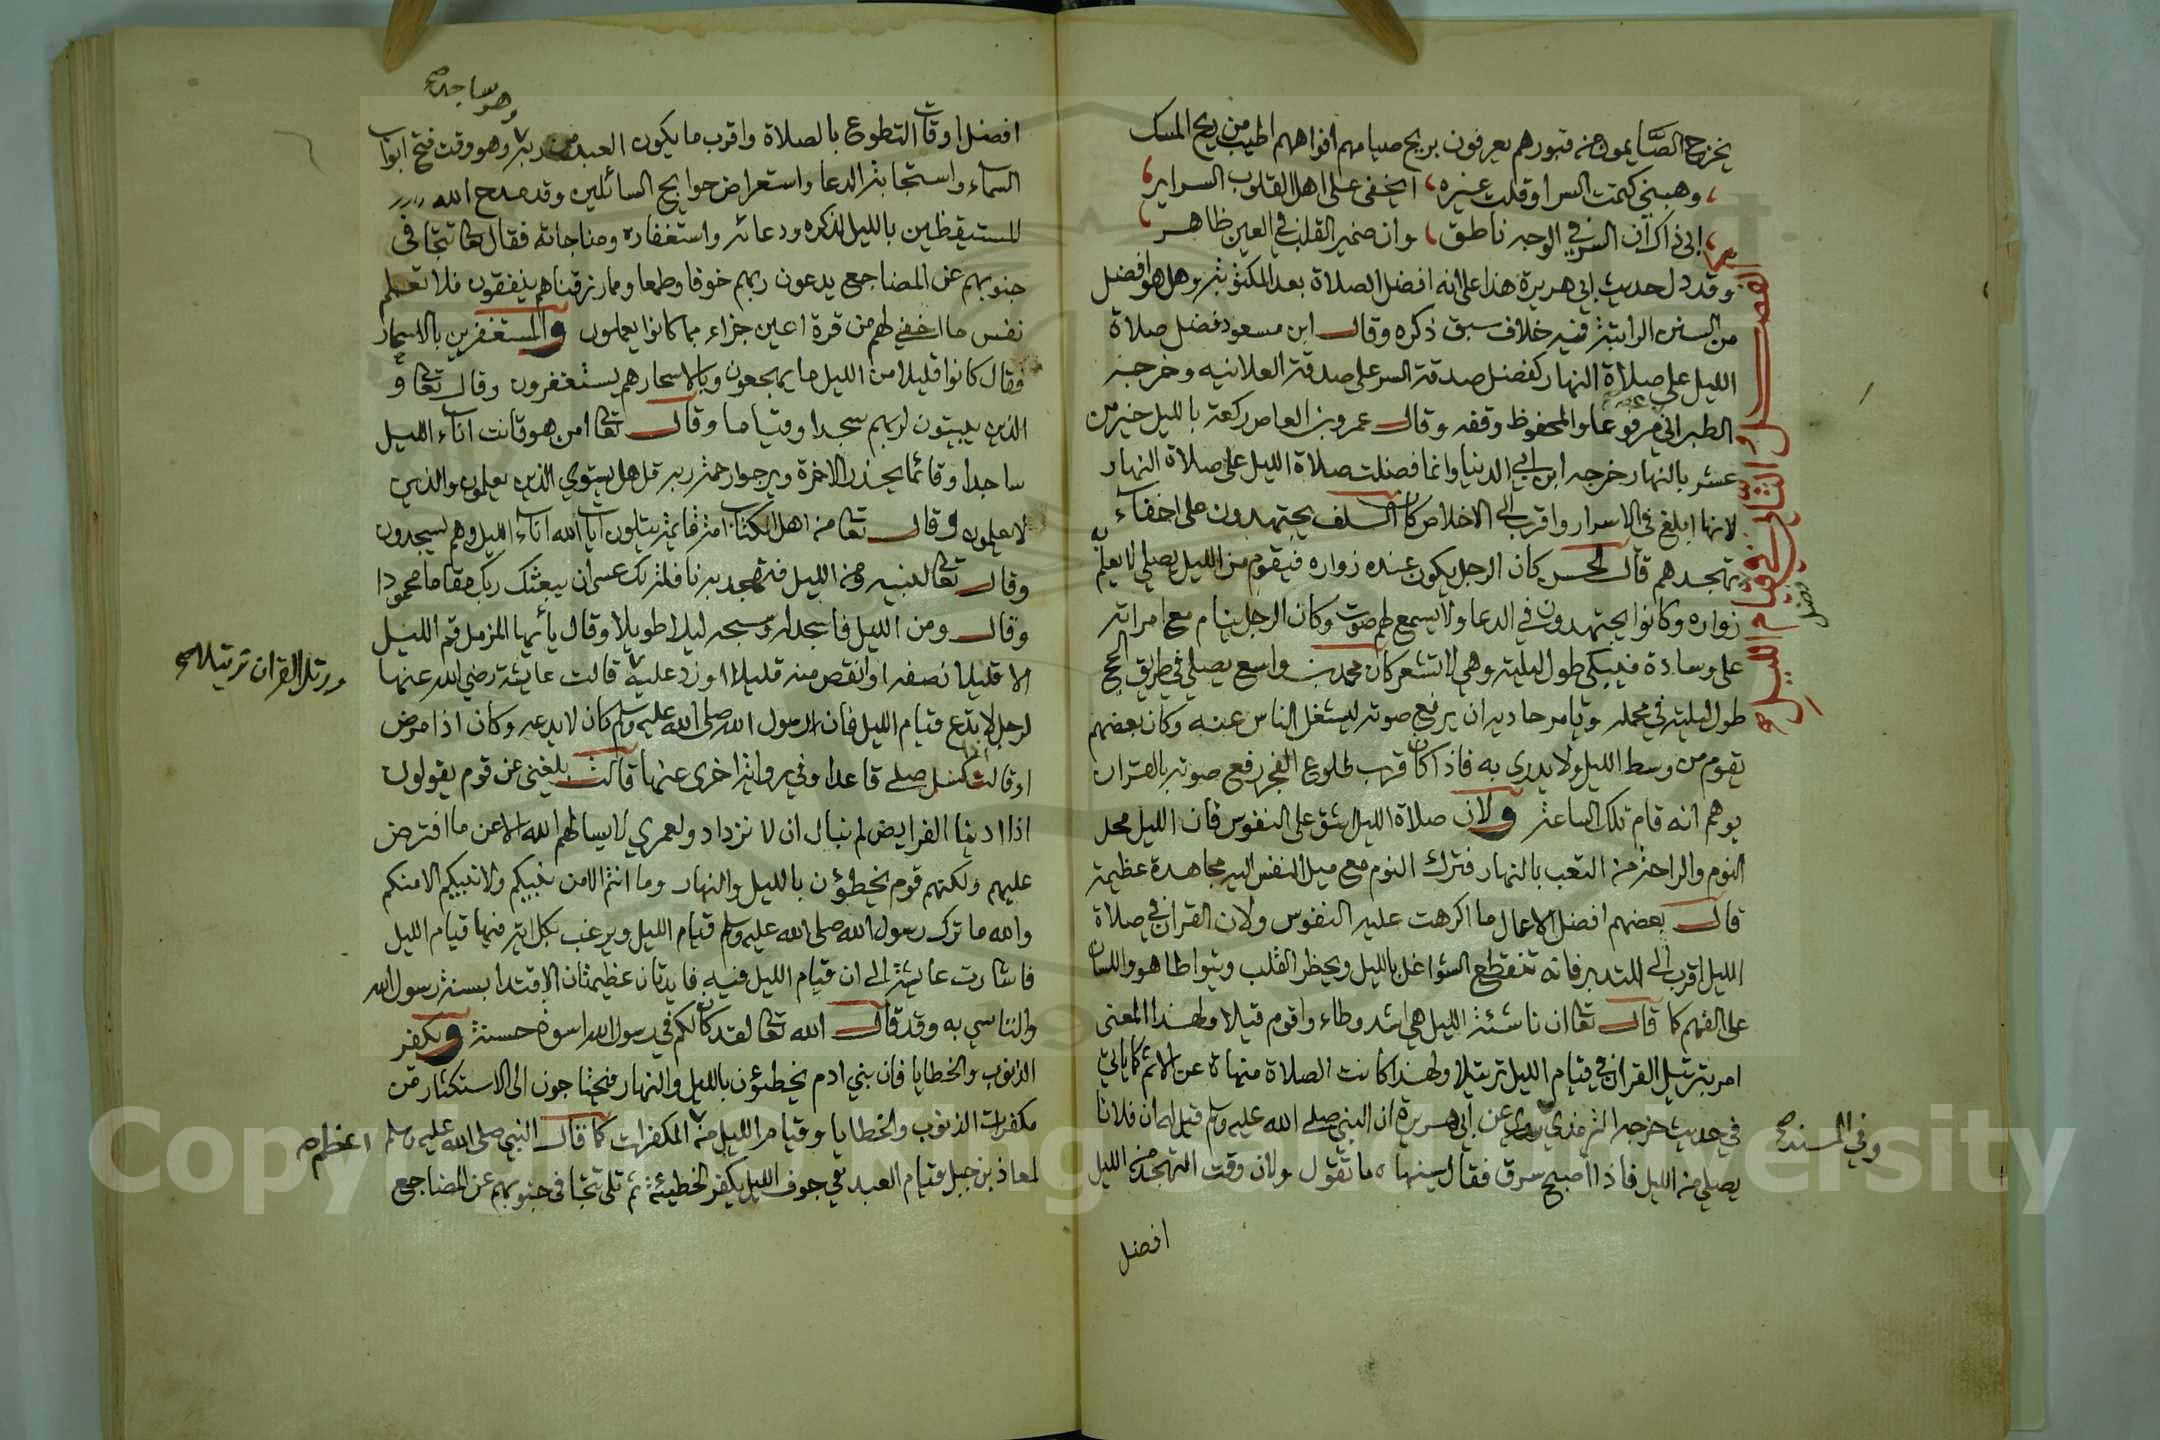 يخرج الصايمون من قبورهم يعرفون بريح صيامهم افواههم اطيب من ريح المسك
وهبني كتمت السر او قلت غيره ايخفى على اهل القلوب السراير
ابى ذاك ان السر في الوجه ناطق وان ضمير القلب في العين ظاهر
الفصل الثاني في فضل قيام الليل
وقد دل حديث ابي هريرة هذا على انه افضل الصلاة بعد المكتوبة وهل هو افضل
من السنن الراتبة فيه خلاف سبق ذكره وقال ابن مسعود فضل صلاة
الليل على صلاة النهار كفضل صدقة السر على صدقة العلانيه وخرجه
الطبراني مرفوعا والمحفوظ وقفه وقال عمرو بن العاص ركعة بالليل خير من
عشر بالنهار خرجه ابن ابي الدنيا وانما فضلت صلاة الليل على صلاة النهار
لانها ابلغ في الاسرار واقرب الى الاخلاص كان السلف يجتهدون على اخفاء
تهجدهم قال الحسن كان الرجل يكون عنده زواره فيقوم من الليل يصلي لا يعلم به
زواره وكانوا يجتهدون في الدعا ولا يسمع لهم صوت وكان الرجل ينام مع امراته
على وسادة فيبكي طول ليلته وهي لا تشعر كان محمد بن واسع يصلي في طريق الحج
طول ليلته في محمله ويامر حاديه ان يرفع صوته ليشغل الناس عنه وكان بعضهم
يقوم من وسط الليل ولا يدري به فاذا كان قرب طلوع الفجر رفع صوته بالقران
يوهم انه قام تلك الساعة ولان صلاة الليل اشق على النفوس فان الليل محل
النوم والراحة من التعب بالنهار فترك النوم مع ميل النفس اليه مجاهدة عظيمة
قال بعضهم افضل الاعمال ما اكرهت عليه النفوس ولان القران في صلاة
الليل اقرب الى التدبر فانه تنقطع الشواغل بالليل ويحظر القلب ويتواطا هو واللسان
على الفهم كما قال تعا ان ناشئة الليل هي اشد وطاء واقوم قيلا ولهذا المعنى
امر بترتيل القران في قيام الليل ترتيلا ولهذا كانت الصلاة منهاة عن الاثم كما ياتي
في حديث خرجه الترمذي وفي المسند عن ابي هريرة ان النبي صلى الله عليه وسلم قيل له ان فلانا
يصلي من الليل فاذا اصبح سرق فقال سينهاه ما تقول ولان وقت التهجد من الليل
افضل
افضل اوقات التطوع بالصلاة واقرب ما يكون العبد من ربه وهو ساجد وهو وقت فتح ابواب
السماء واستجابة الدعا واستعراض حوايج السائلين وقد مدح الله
المستيقظين بالليل لذكره ودعائه واستغفاره ومناجاته فقال تعا تتجافى
جنوبهم عن المضاجع يدعون ربهم خوفا وطمعا ومما رزقناهم ينفقون فلا تعلم
نفس ما اخفي لهم من قرة اعين جزاء بما كانوا يعملون والمستغفرين بالاسحار
فقال كانوا قليلا من الليل ما يهجعون وبالاسحار هم يستغفرون وقال تعا و
الذين يبيتون لربهم سجدا وقياما وقال تعا امن هو قانت اناء الليل
ساجدا وقائما يحذر الاخرة ويرجوا رحمة ربه قل هل يستوي الذين يعلمون والذين
لا يعلمون وقال تعا من اهل الكتاب امة قايمة يتلون ايات الله اناء الليل وهم يسجدون
وقال تعا لنبيه ومن الليل فتهجد به نافلة لك عسى ان يبعثك ربك مقاما محمودا
وقال ومن الليل فاسجد له وسبحه ليلا طويلا وقال يأيها المزمل قم الليل
الا قليلا نصفه او انقص منه قليلا او زد عليه ورتل القران ترتيلا قالت عايشة رضي الله عنها
لرجل لا تدع قيام الليل فان رسول الله صلى الله عليه وسلم كان لا يدعه وكان اذا مرض
او قالت كسل صلى قاعدا وفي رواية اخرى عنها قالت بلغني عن قوم يقولون
اذا ادينا الفرايض لم نبال ان لا نزداد ولعمري لا يسالهم الله الا عن ما افترض
عليهم ولكنهم قوم يخطؤن بالليل والنهار وما انتم الا من نبيكم ولا نبيكم الا منكم
والله ما ترك رسول الله صلى الله عليه وسلم قيام الليل ويرغب بكل اية فيها قيام الليل
فاشارت عايشة الى ان قيام الليل فيه فايدتان عظيمتان الاقتدا بسنة رسول الله
والتاسي به وقد قال الله تعا لقد كان لكم في رسول الله اسوة حسنة وتكفير
الذنوب والخطايا فان بني ادم يخطؤن بالليل والنهار فيحتاجون الى الاستكثار من
مكفرات الذنوب والخطايا وقيام الليل من اعظم المكفرات كما قال النبي صلى الله عليه وسلم
لمعاذ بن جبل وقيام العبد في جوف الليل يكفر الخطيئة ثم تلى تتجافى جنوبهم عن المضاجع
Copyright © King Saud University